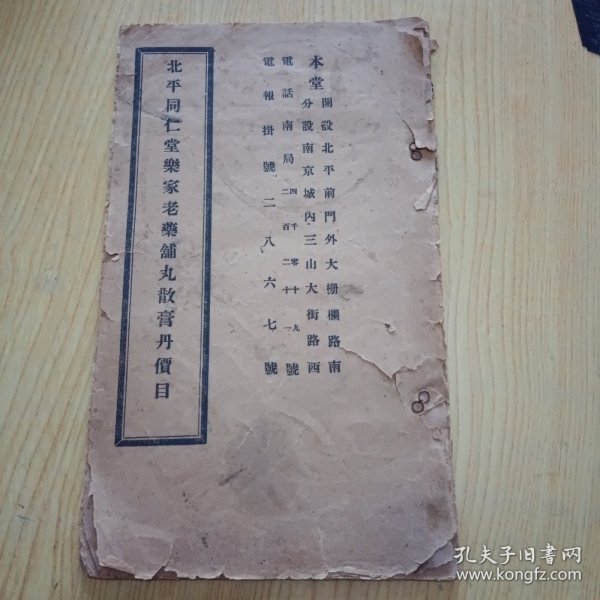 本堂
開設北平前門外大柵欄路南
分設南京城內三山大街路西
電話南局
四千零十九
二百二十一
號
電報掛號二八六七號
北平同仁堂樂家老藥舖丸散膏丹價目
孔夫子旧書网
www.kongfz.com